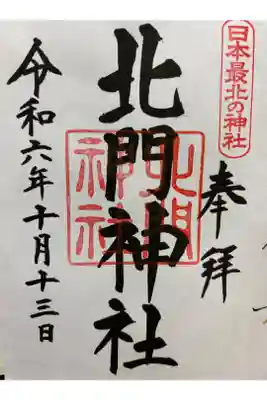 日本最北の神社
奉拝
北門神社
北門神社
令和六年十月十三日